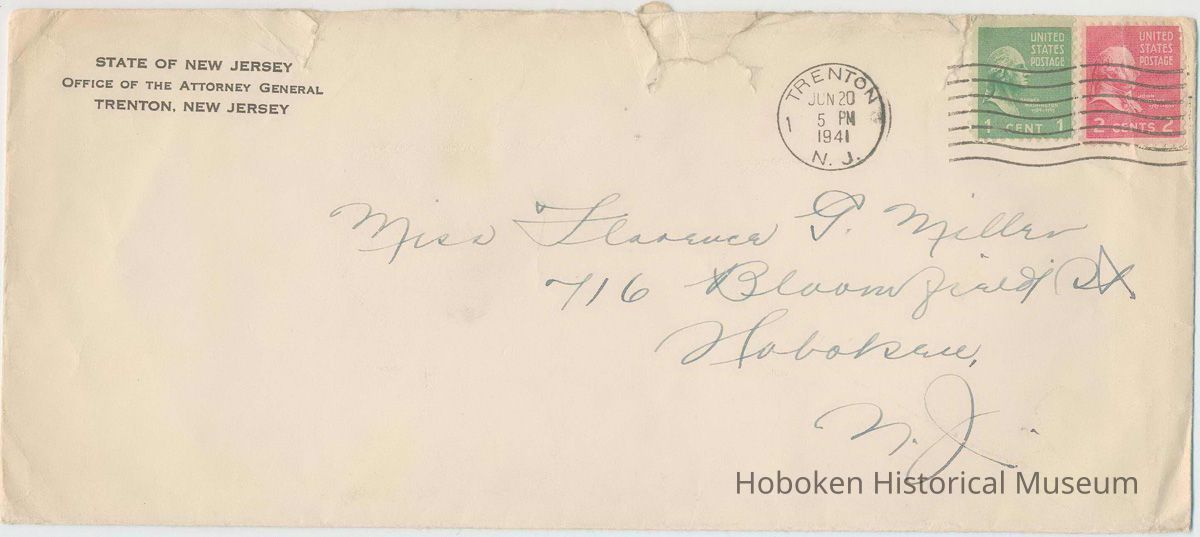 STATE OF NEW JERSEY
OFFICE OF THE ATTORNEY GENERAL
TRENTON, NEW JERSEY
TRENTON
1
JUN 20
5 PM
1941
N. J.
UNITED
STATES
POSTAGE
WASHINGTON
1 CENT 1
UNITED
STATES
POSTAGE
2 CENTS 2
Miss Florence G. Miller
716 Bloomfield St
Hoboken,
N. J.
Hoboken Historical Museum